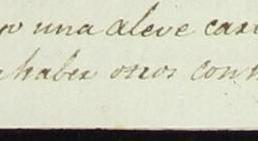 una aleve car
haber otros con